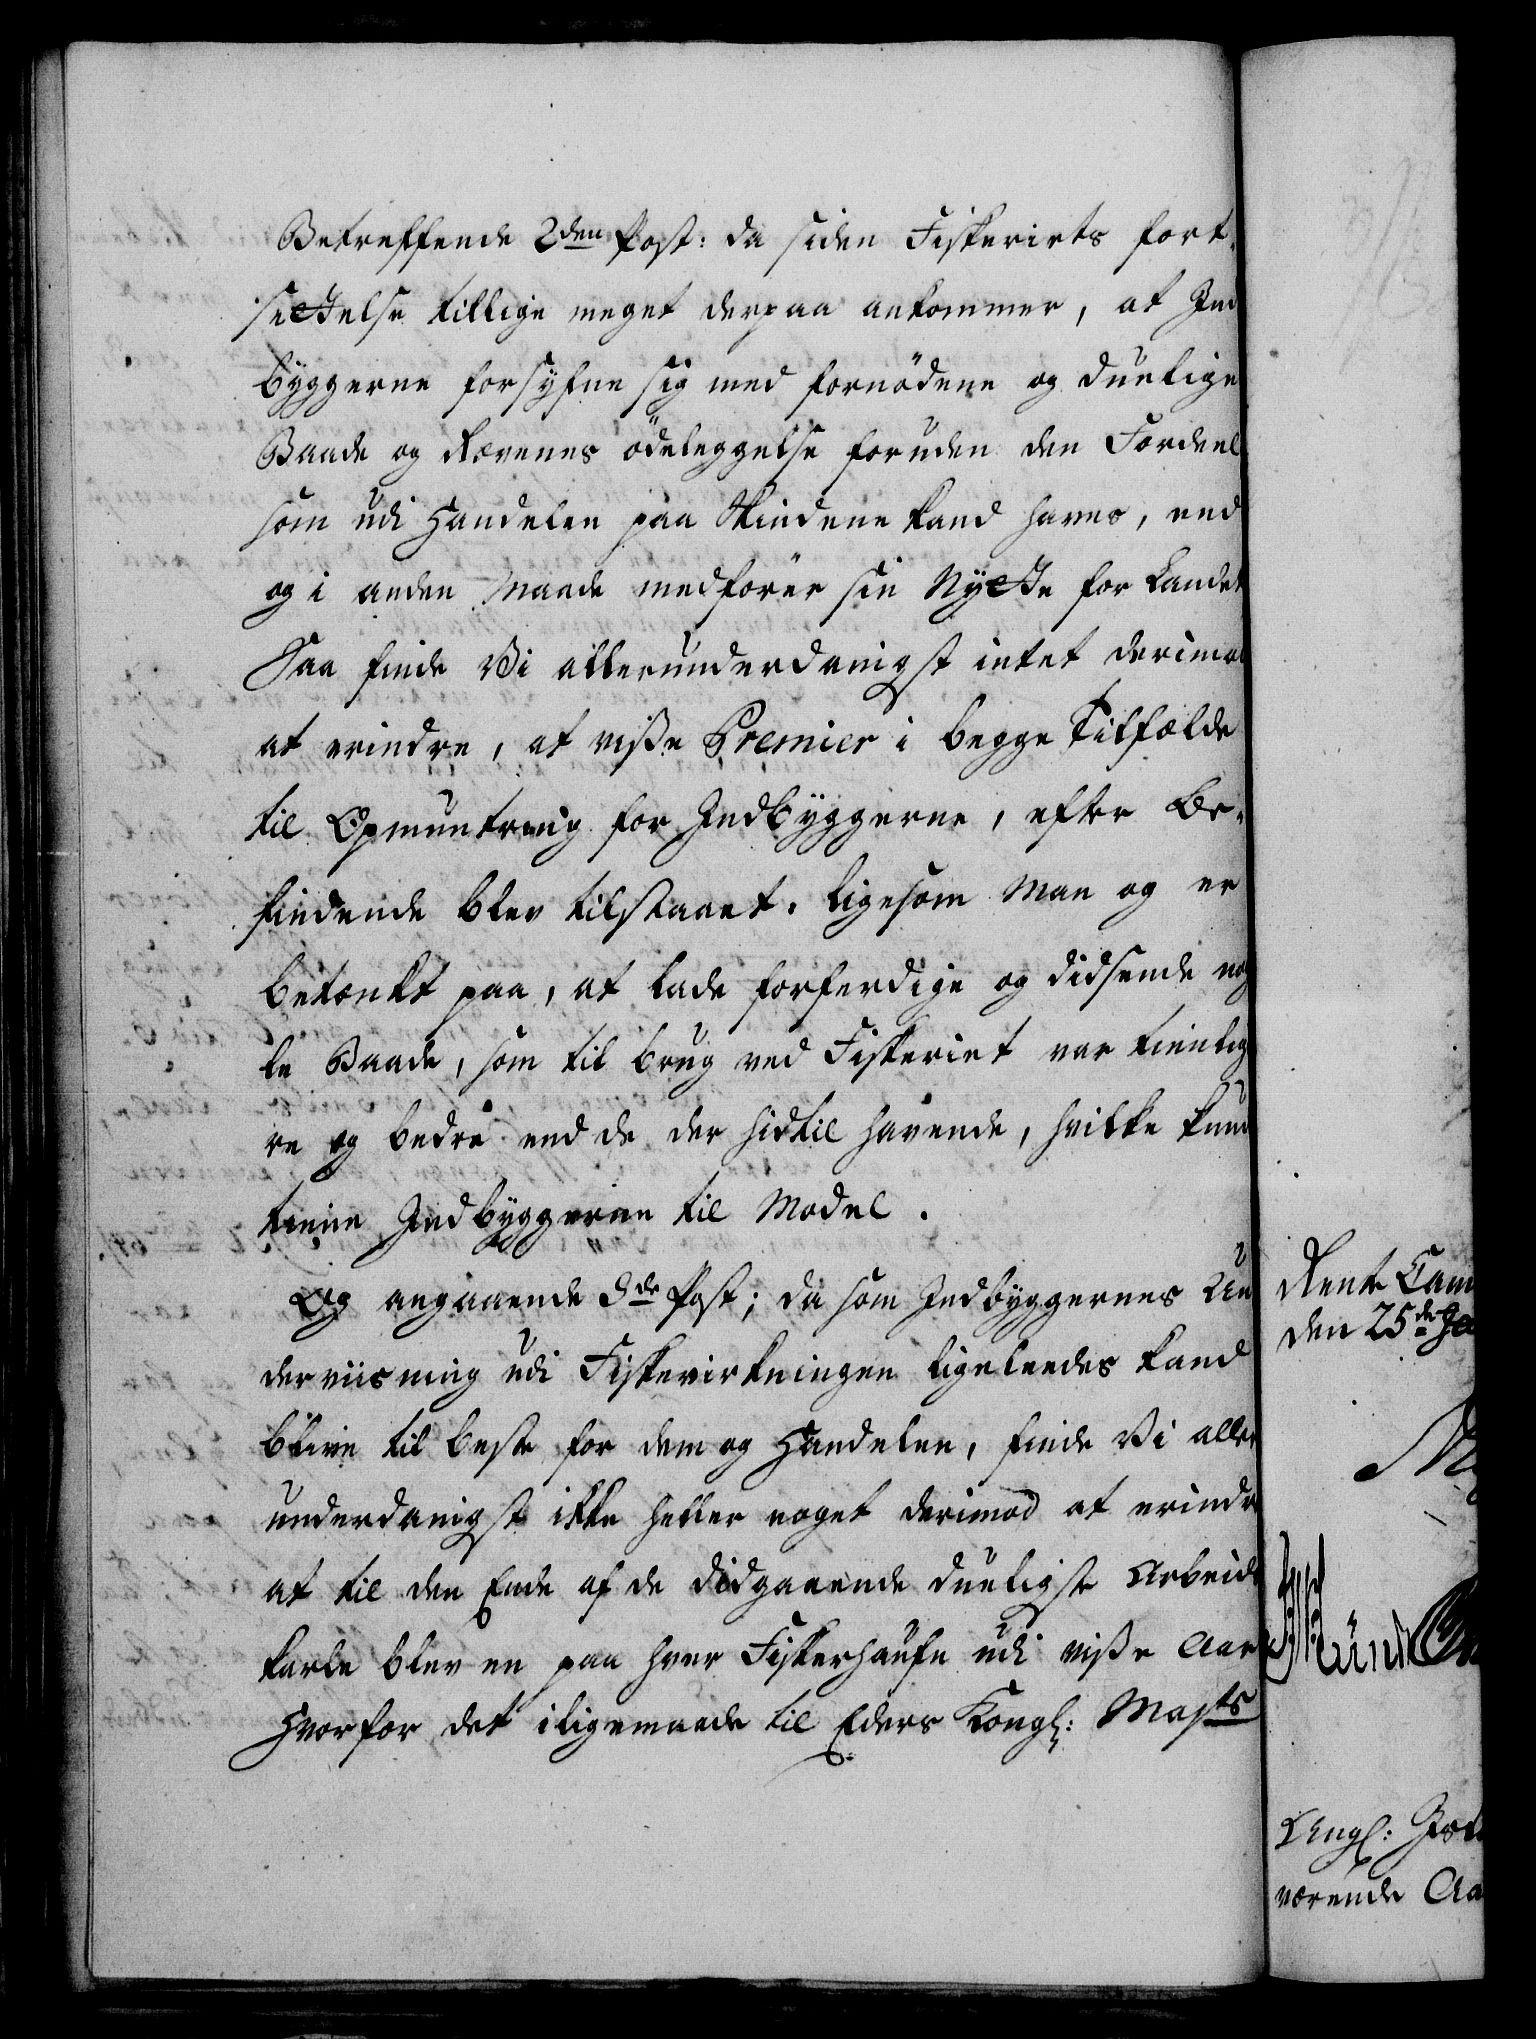 Betreffende 2den Post: da siden Fiskeriets fort-
settelse tillige meget derpaa ankommer, at Ind
byggerne forsyfne sig med fornödene og duelige
Baade og Rævenes ödeleggelse foruden den Fordeel
som udi Handelen paa Skindene kand haves, end
og i anden Maade medförer sin Nytte for Landet
Saa finde Vi allerunderdanigst intet derimod
at erindre, at visse Premier i begge Tilfælde
til Opmuntring for Indbyggerne, efter Be-
findende blev tilstaaet. ligesom Man og er
betænkt paa, at lade forferdige og didsende nog
le Baade, som til brug ved Fiskeriet var tienlig
re og bedre end de der hidtil havende, hvilke kund
tiene Indbyggerne til Model.
Og angaaende 3de Post; da som Indbyggernes Un
derviisning udi Fiskevirkningen ligeleedes kand
blive til beste for dem og Handelen, finde Vi aller
underdanigst ikke heller noget derimod at erindre
at til den Ende af de didgaaende dueligste Arbeids
karle blev en paa hver Fiskerhaufn udi visse Aar
Hvorfor det iligemaade til Eders Kongl: Majts
Rente Cam
den 25de Ja
Kongl: Isl
værende Aa